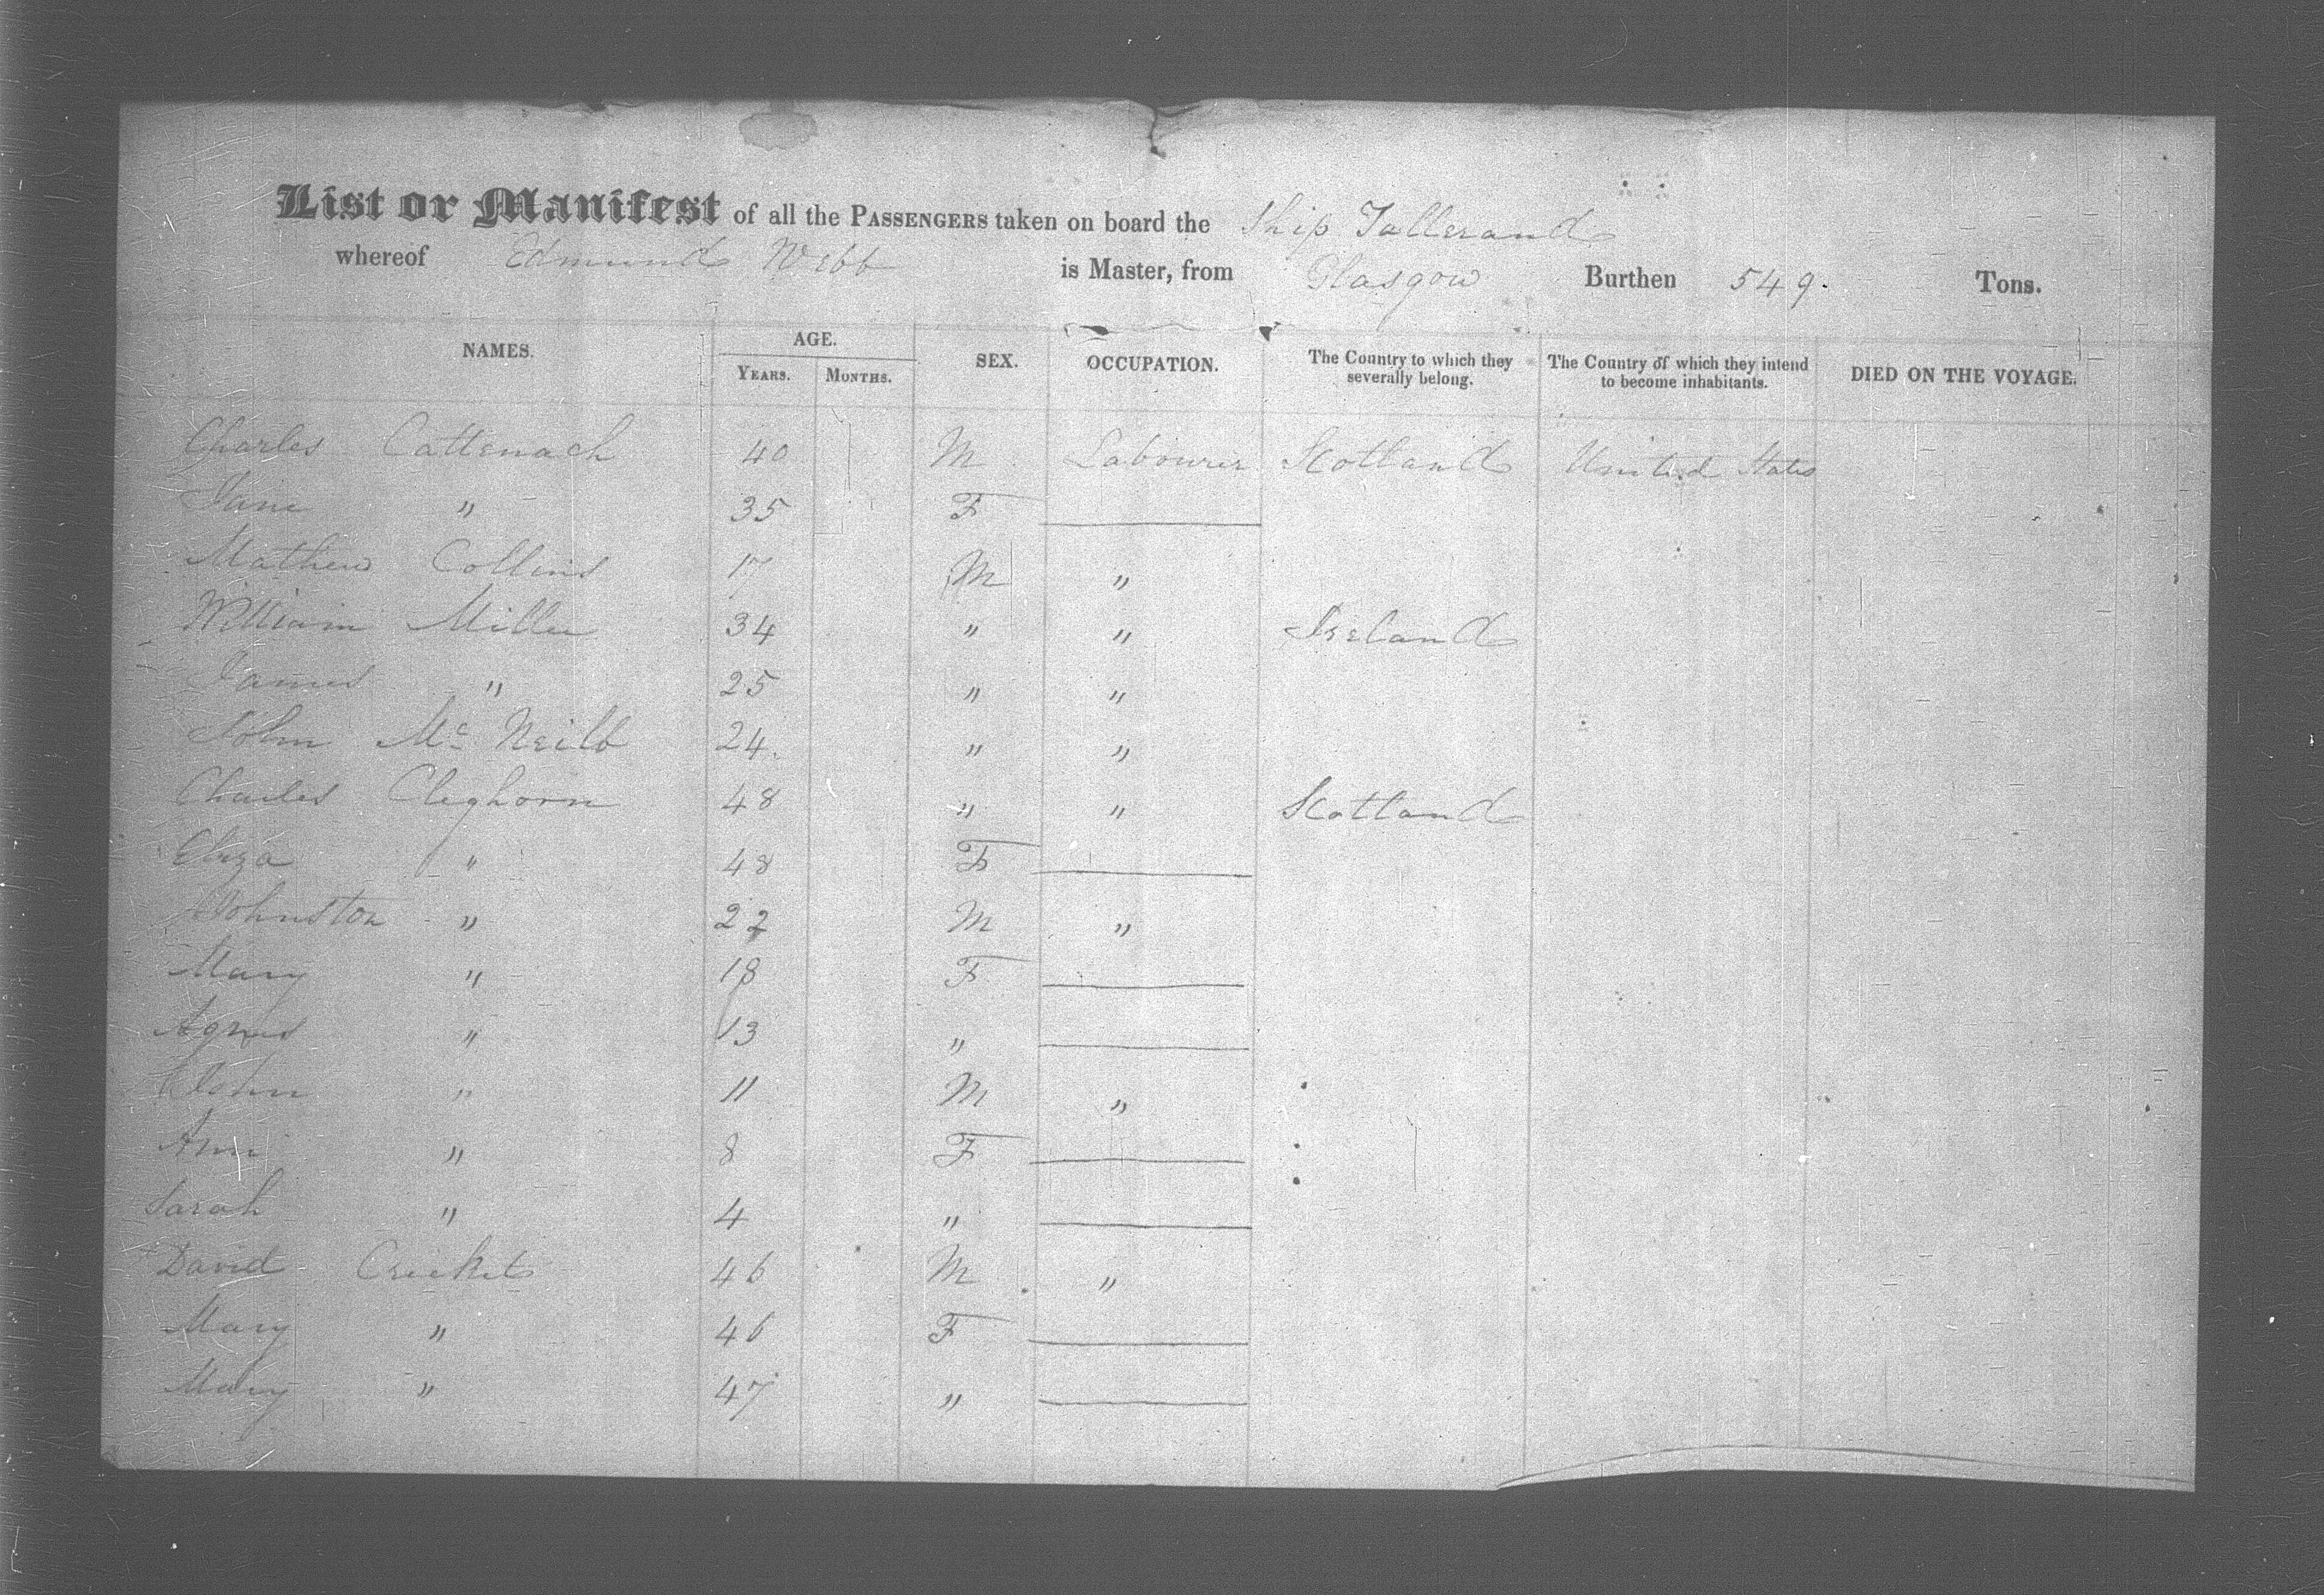 List or Manifest of all the PASSENGERS taken on board the Ship Tallerand
whereof Edmund Webb is Master, from Glasgow Burthen 549. Tons.
NAMES. AGE. SEX. OCCUPATION. The Country to which they severally belong. The Country of which they intend to become inhabitants. DIED ON THE VOYAGE.
YEARS. MONTHS.
Charles Cattenach 40 M Labourer Scotland United States
Jane " 35 F
Mathew Collins 17 M "
William Miller 34 " " Ireland
James " 25 " "
John Mc Neill 24. " "
Charles Cleghorn 48 " " Scotland
Eliza " 48 F
Johnston " 22 M "
Mary " 18 F
Agnes " 13 "
John " 11 M "
Ann " 8 F
Sarah " 4 "
David Cricket 46 M "
Mary " 46 F
Mary " 47 "